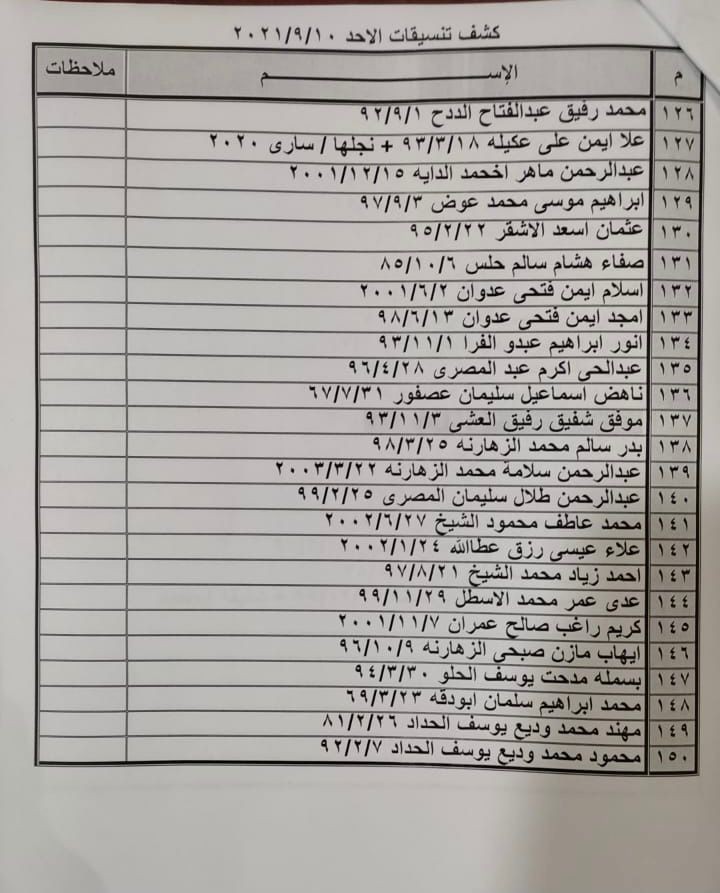 كشف تنسيقات الاحد ٢٠٢١/٩/١٠
م الإســـــــم ملاحظات
١٢٦ محمد رفيق عبدالفتاح الددح ٩٢/٩/١
١٢٧ علا ايمن على عكيله ٩٣/٣/١٨ + نجلها / سارى ٢٠٢٠
١٢٨ عبدالرحمن ماهر اخحمد الدايه ٢٠٠١/١٢/١٥
١٢٩ ابراهيم موسى محمد عوض ٩٧/٩/٣
١٣٠ عثمان اسعد الاشقر ٩٥/٢/٢٢
١٣١ صفاء هشام سالم حلس ٨٥/١٠/٦
١٣٢ اسلام ايمن فتحى عدوان ٢٠٠١/٦/٢
١٣٣ امجد ايمن فتحى عدوان ٩٨/٦/١٣
١٣٤ انور ابراهيم عبدو الفرا ٩٣/١١/١
١٣٥ عبدالحى اكرم عبد المصرى ٩٦/٤/٢٨
١٣٦ ناهض اسماعيل سليمان عصفور ٦٧/٧/٣١
١٣٧ موفق شفيق رفيق العشى ٩٣/١١/٣
١٣٨ بدر سالم محمد الزهارنه ٩٨/٣/٢٥
١٣٩ عبدالرحمن سلامة محمد الزهارنه ٢٠٠٣/٣/٢٢
١٤٠ عبدالرحمن طلال سليمان المصرى ٩٩/٢/٢٥
١٤١ محمد عاطف محمود الشيخ ٢٠٠٢/٦/٢٧
١٤٢ علاء عيسى رزق عطاالله ٢٠٠٢/١/٢٤
١٤٣ احمد زياد محمد الشيخ ٩٧/٨/٢١
١٤٤ عدى عمر محمد الاسطل ٩٩/١١/٢٩
١٤٥ كريم راغب صالح عمران ٢٠٠١/١١/٧
١٤٦ ايهاب مازن صبحى الزهارنه ٩٦/١٠/٩
١٤٧ بسمله مدحت يوسف الحلو ٩٤/٣/٣٠
١٤٨ محمد ابراهيم سلمان ابودقه ٦٩/٣/٢٣
١٤٩ مهند محمد وديع يوسف الحداد ٨١/٢/٢٦
١٥٠ محمود محمد وديع يوسف الحداد ٩٢/٢/٧